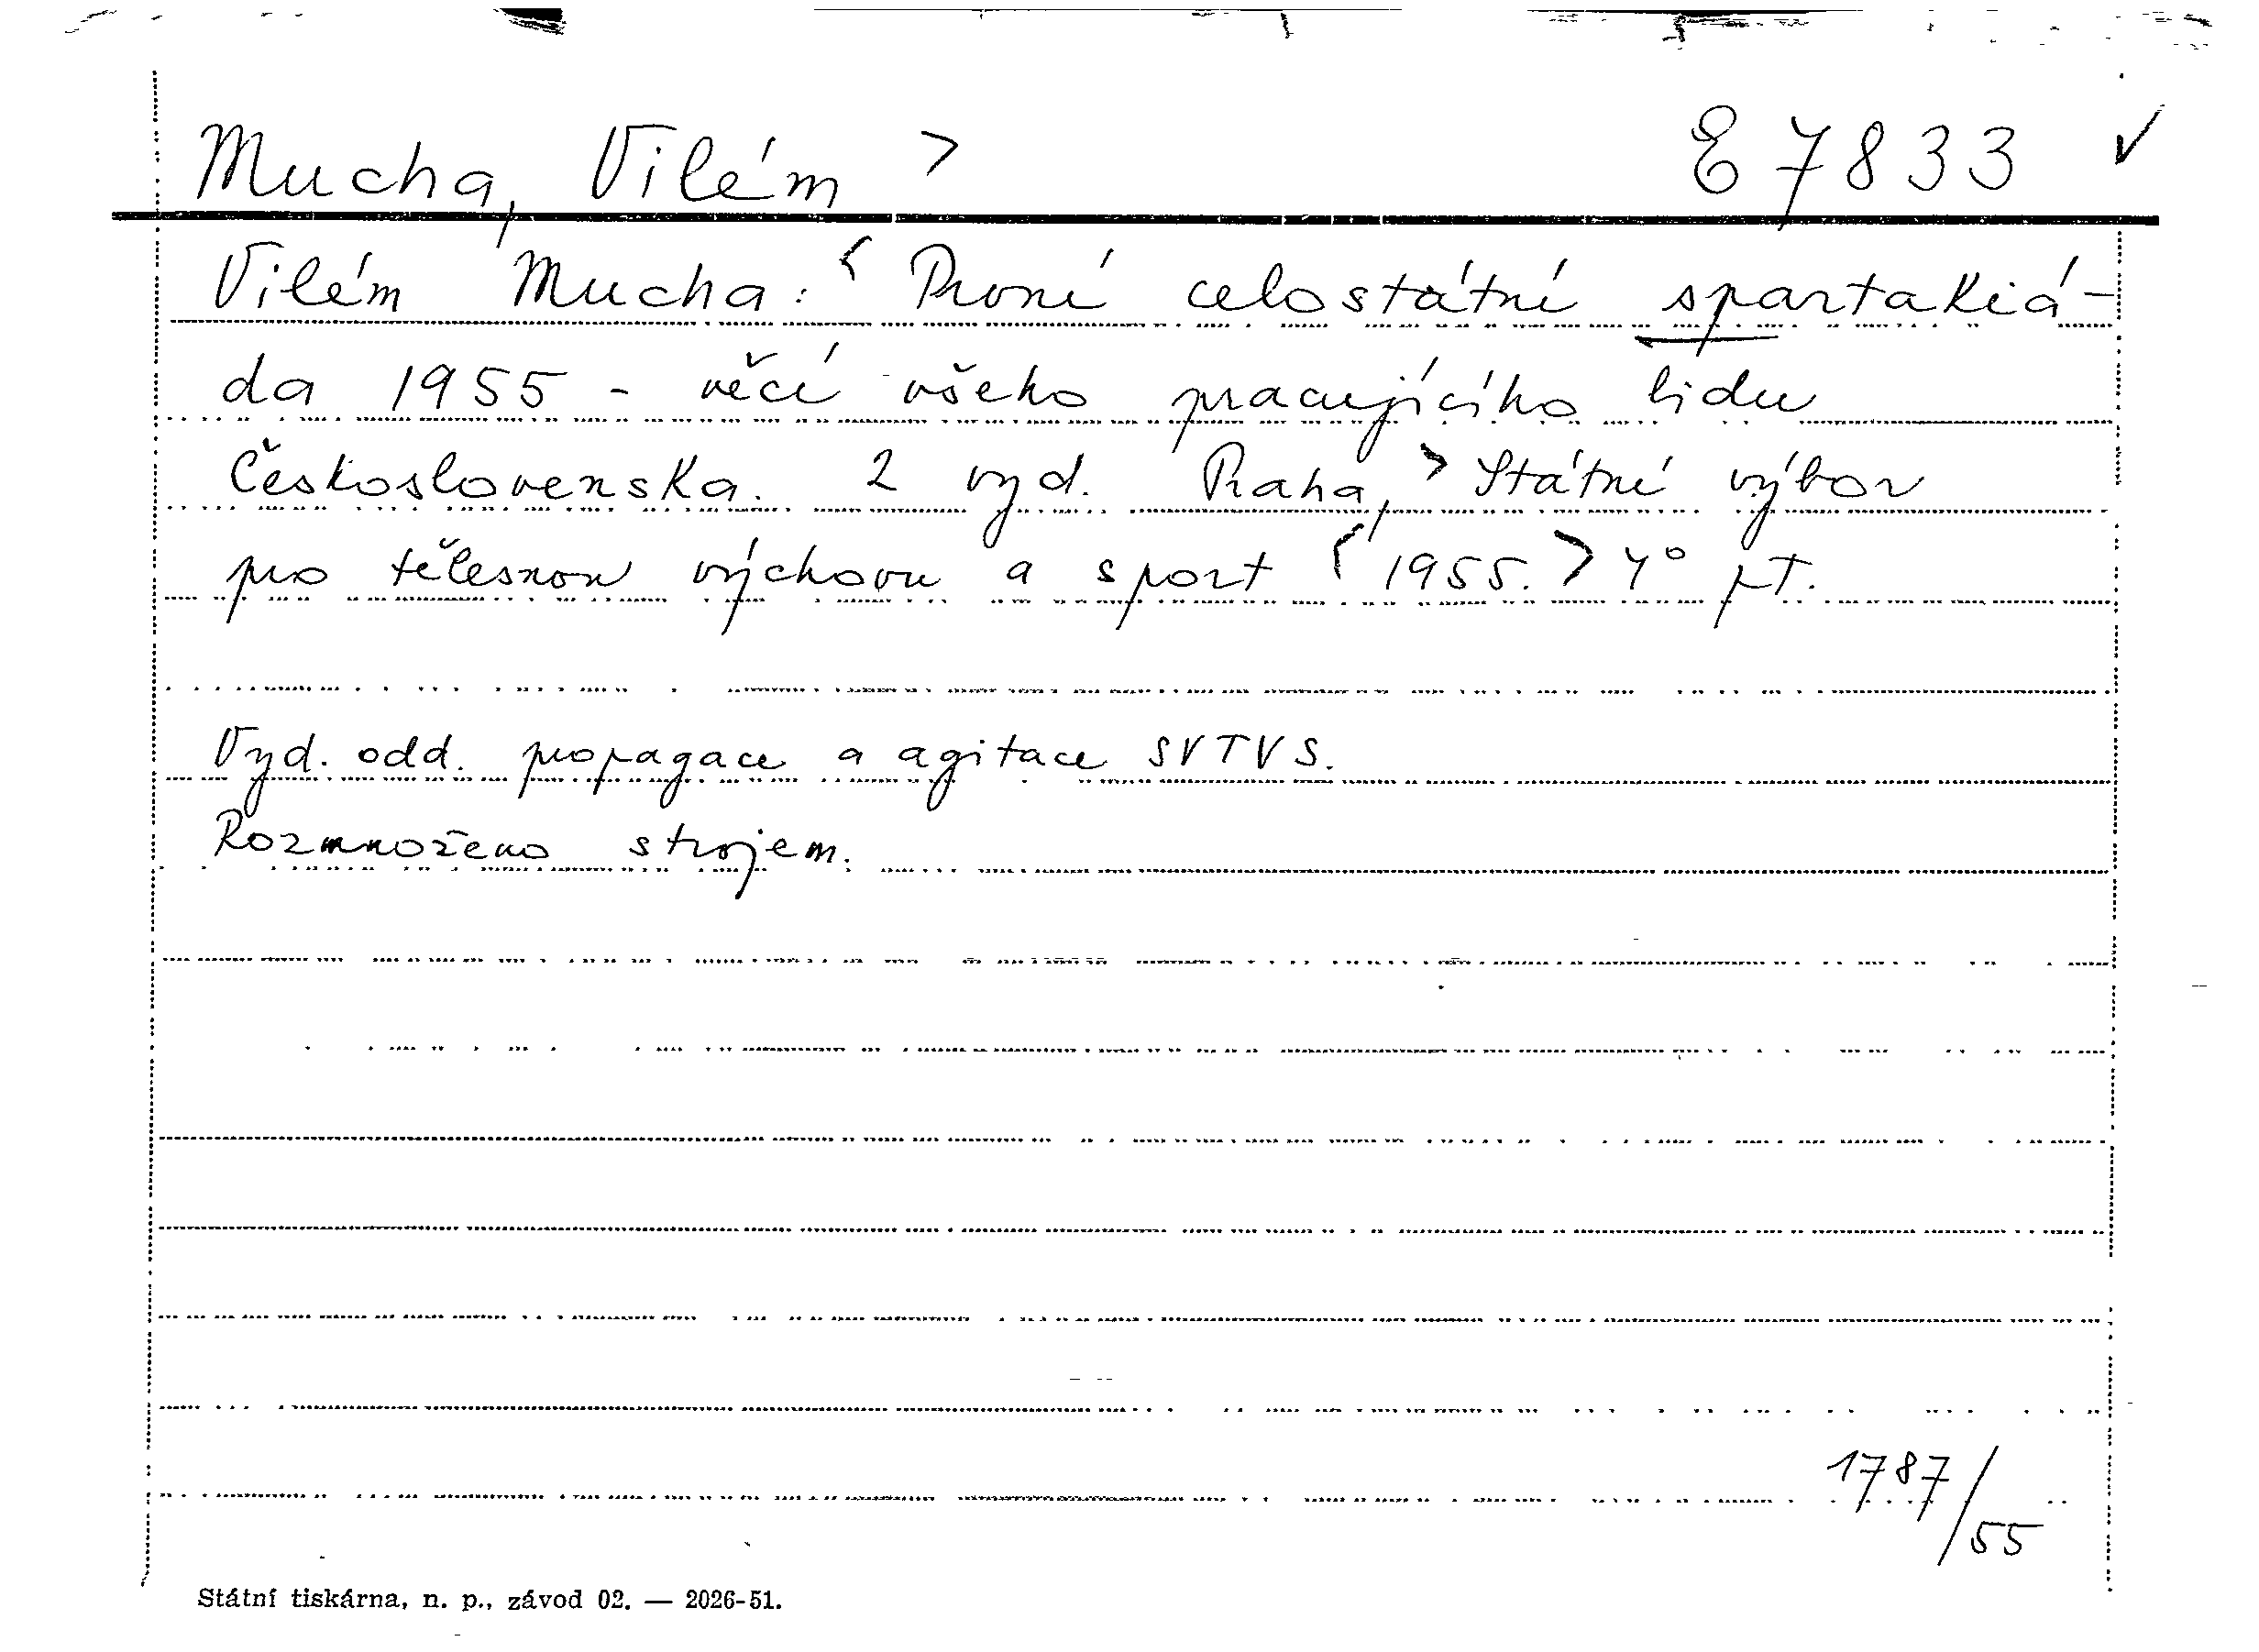 Mucha, Vilém > E 7833 ✓
Vilém Mucha: < První celostátní spartakiá-
da 1955 - věcí všeho pracujícího lidu
Československa. 2 vyd. Praha, > Státní výbor
pro tělesnou výchovu a sport < 1955. > 4°
Vyd. odd. propagace a agitace SVTVS.
Rozmnoženo strojem.
1787/55
Státní tiskárna, n. p., závod 02. — 2026-51.